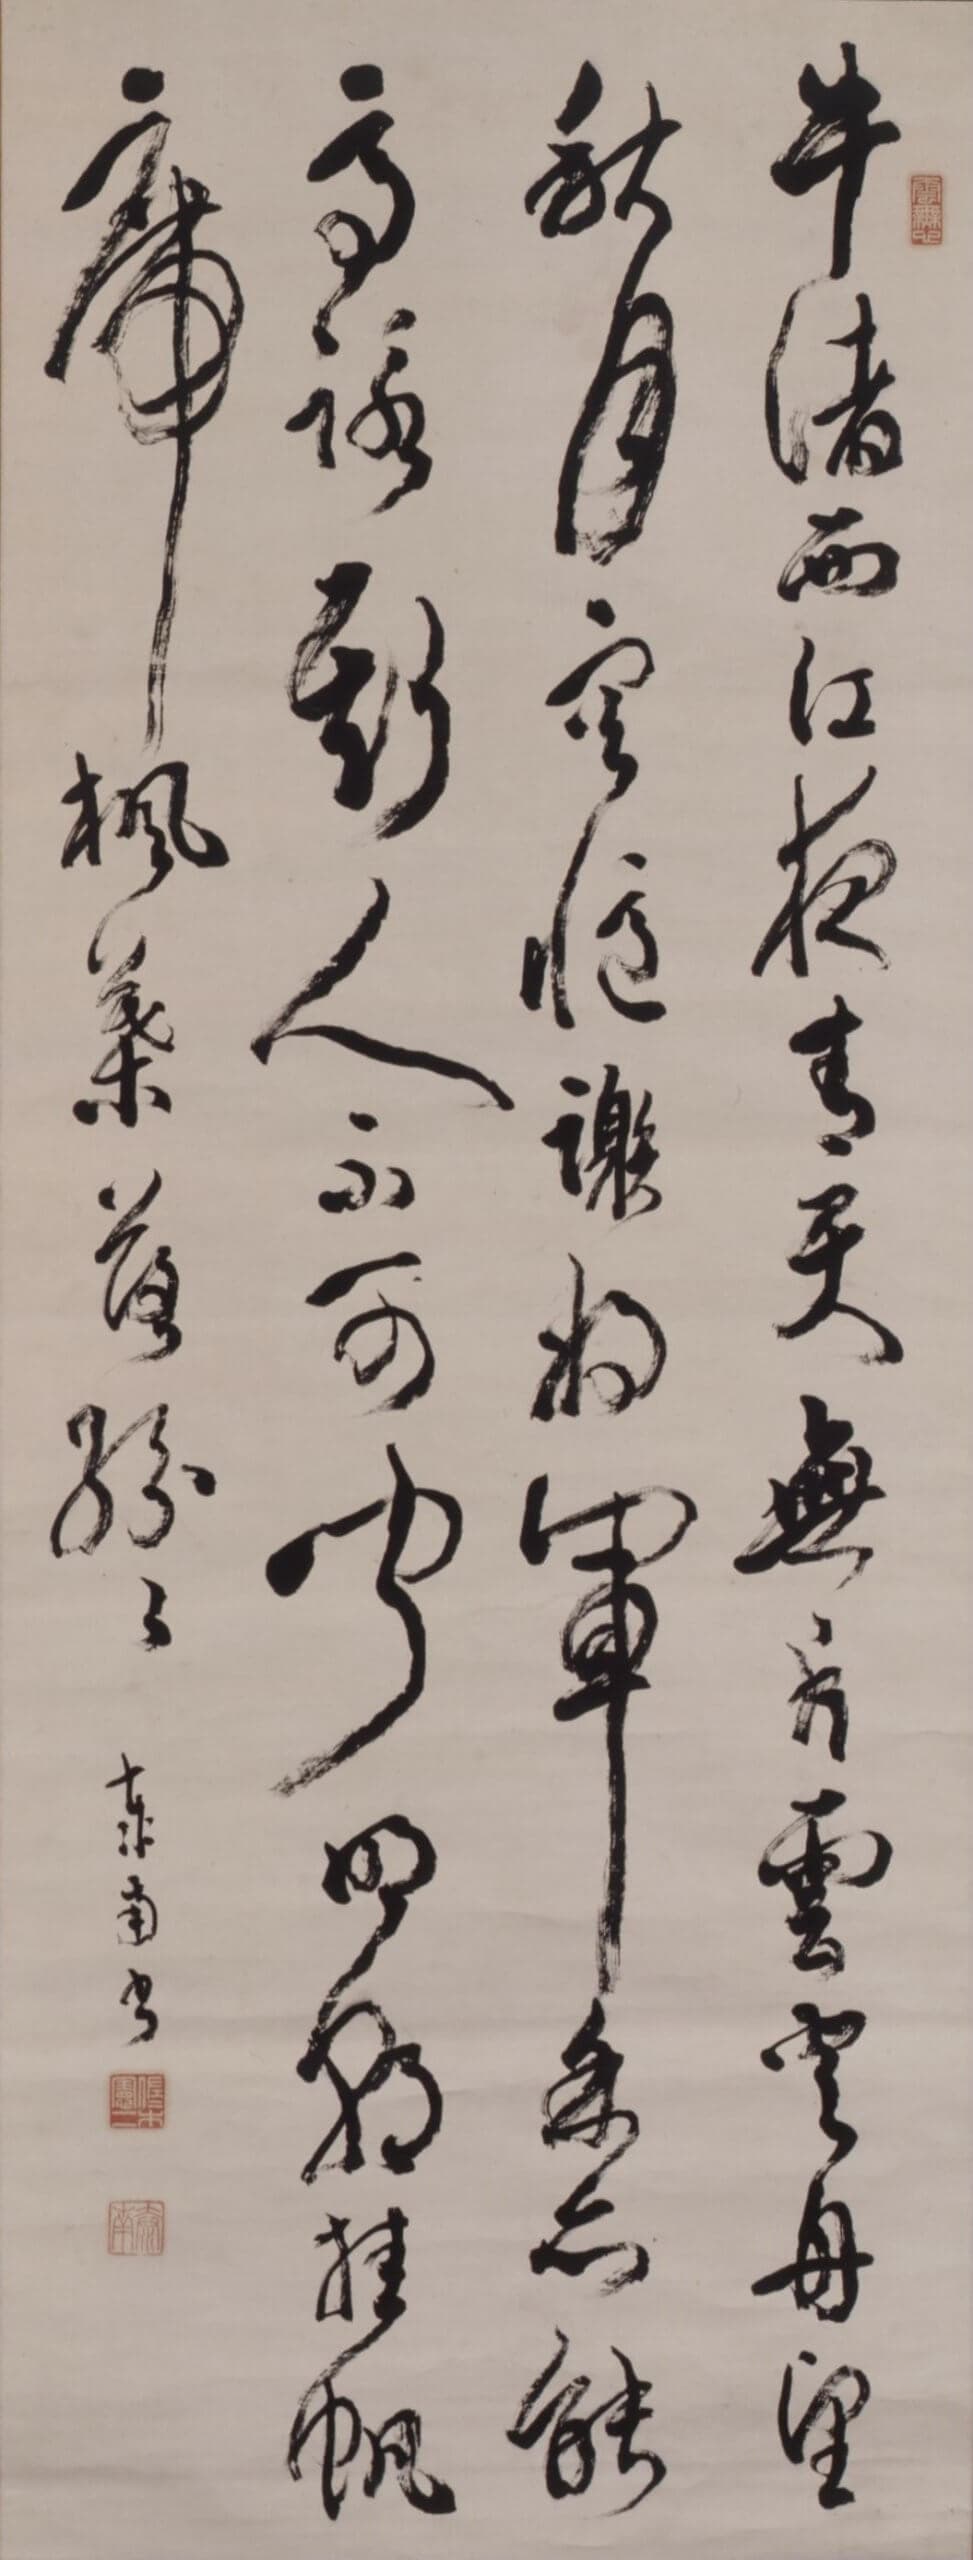 牛渚西江夜青天無片雲登舟望
秋月空憶謝将軍余亦能
高詠斯人不可聞明朝挂帆
席楓葉落紛々
泰南書
雲無心
泰南